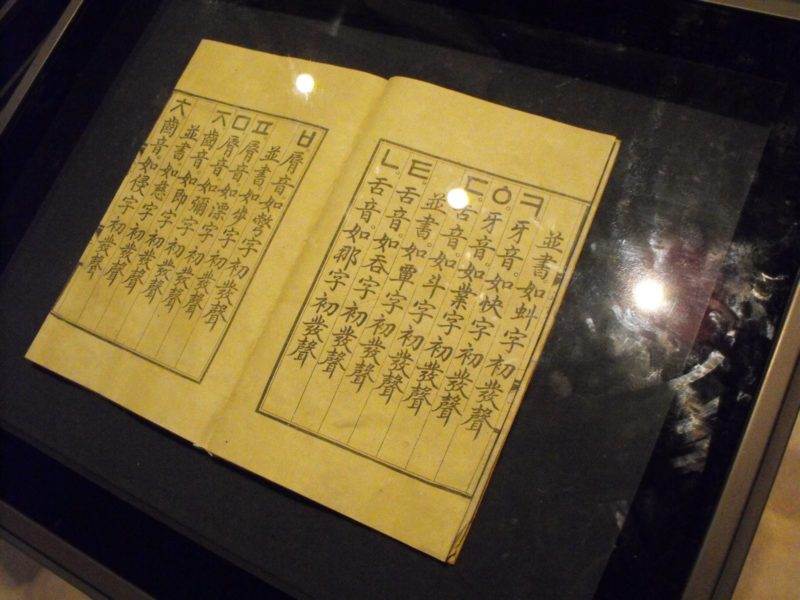 並書如虯字初發聲
ㅋ牙音如快字初發聲
ㆁ牙音如業字初發聲
ㄷ舌音。如斗字初發聲
並書。如覃字初發聲
ㅌ舌音。如呑字初發聲
ㄴ舌音。如那字初發聲
ㅂ脣音如彆字初發聲
並書如步字初發聲
ㅍ脣音如漂字初發聲
ㅁ脣音如彌字初發聲
ㅈ齒音如即字初發聲
並書如慈字初發聲
ㅊ齒音如侵字初發聲